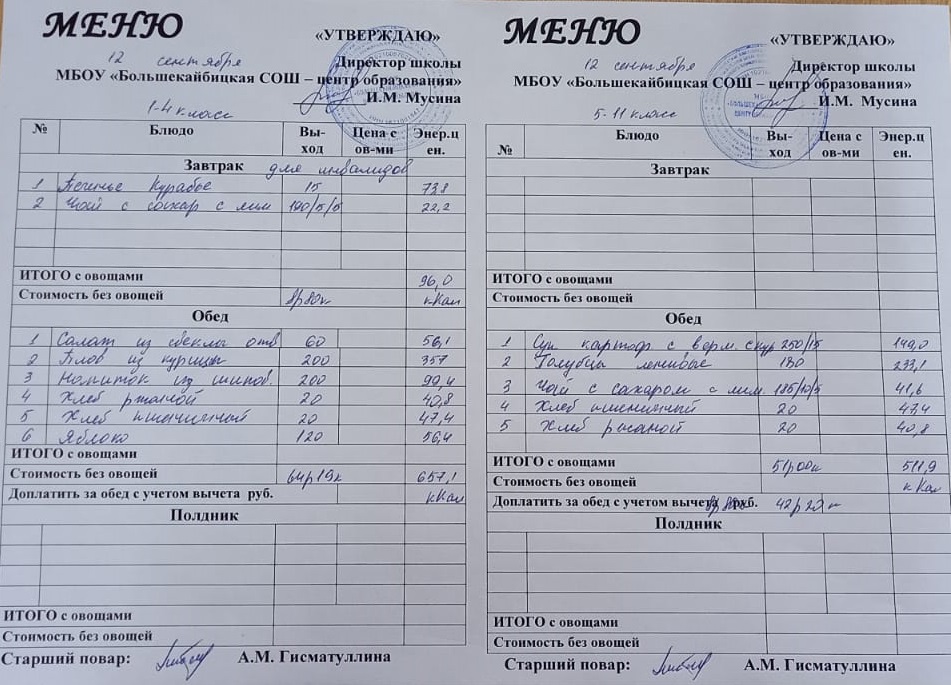 МЕНЮ
«УТВЕРЖДАЮ»
12 сентября
Директор школы
МБОУ «Большекайбицкая СОШ – центр образования»
И.М. Мусина
1-4 класс
№ Блюдо Вы-ход Цена с ов-ми Энер.цен.
Завтрак для инвалидов
1 Печенье Курабье 15 73,8
2 Чай с сахар с лим 22,2
ИТОГО с овощами 96,0
Стоимость без овощей 8р80к кКал
Обед
1 Салат из свеклы отв 60 56,1
2 Плов из курицы 200 357
3 Напиток из шипов. 200 99,4
4 Хлеб ржаной 20 40,8
5 Хлеб пшеничный 20 47,4
6 Яблоко 120 56,4
ИТОГО с овощами
Стоимость без овощей 64р19к 657,1
Доплатить за обед с учетом вычета руб. кКал
Полдник
ИТОГО с овощами
Стоимость без овощей
Старший повар: А.М. Гисматуллина
МЕНЮ
«УТВЕРЖДАЮ»
12 сентября
Директор школы
МБОУ «Большекайбицкая СОШ – центр образования»
И.М. Мусина
5-11 класс
№ Блюдо Вы-ход Цена с ов-ми Энер.цен.
Завтрак
ИТОГО с овощами
Стоимость без овощей
Обед
1 Суп картоф. с верм. с кур 250/15 149,0
2 Голубцы ленивые 130 233,1
3 Чай с сахаром с лим. 185/10/5 41,6
4 Хлеб пшеничный 20 47,4
5 Хлеб ржаной 20 40,8
ИТОГО с овощами 51р00к 511,9
Стоимость без овощей кКал
Доплатить за обед с учетом вычета руб. 42р20к
Полдник
ИТОГО с овощами
Стоимость без овощей
Старший повар: А.М. Гисматуллина